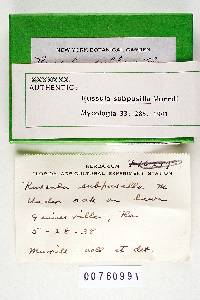 NEW YORK BOTANICAL GARDEN
XXXXXXX
AUTHENTIC:
Russula subpusilla Murrill
Mycologia 33: 285. 1941
HERBARIUM
FLORIDA AGRICULTURAL EXPERIMENT STATION
Russula subpusilla M
Under oak on lawn
Gainesville, Fla
5-28-38
Murrill coll et det.
00760991